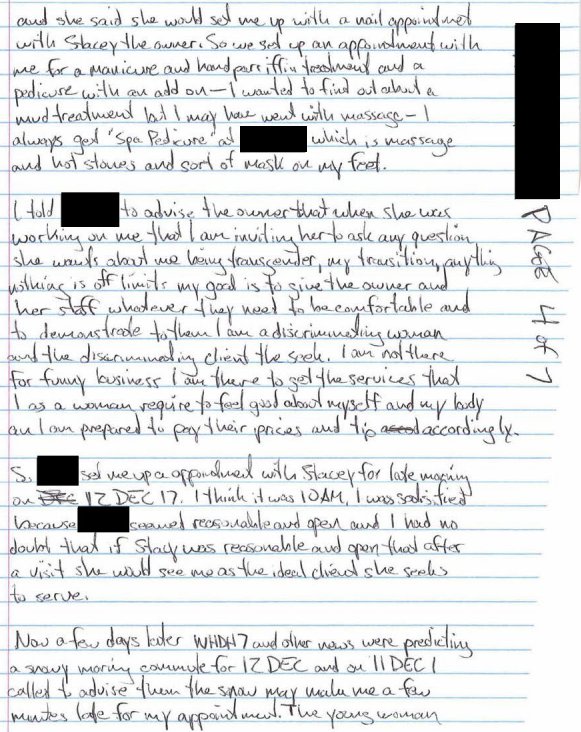 and she said she would set me up with a nail appointmet
with Stacey the owner. So we set up an appointment with
me for a manicure and hand parriffin treatment and a
pedicure with an add on - I wanted to find out about a
mud treatment but I may have went with massage - I
always get "Spa Pedicure" at which is massage
and hot stones and sort of mask on my feet.
I told to advise the owner that when she was
working on me that I am inviting her to ask any question
she wants about me being transgender, my transition, anything
nothing is off limits my goal is to give the owner and
her staff whatever they need to be comfortable and
to demonstrate to them I am a discriminating woman
and the discriminating client the seek. I am not there
for funny business I am there to get the services that
I as a woman require to feel good about myself and my body
an I am prepared to pay their prices and tip accordingly.
S. set me up a appointment with Stacey for late morning
on 12 DEC 17. I think it was 10AM, I was satisfied
because seemed reasonable and open and I had no
doubt that if Stacy was reasonable and open that after
a visit she would see me as the ideal client she seeks
to serve.
Now a few days later WHDH7 and other news were predicting
a snowy morning commute for 12 DEC and on 11 DEC I
called to advise them the snow may make me a few
minutes late for my appointment. The young woman
PAGE 4 of 7